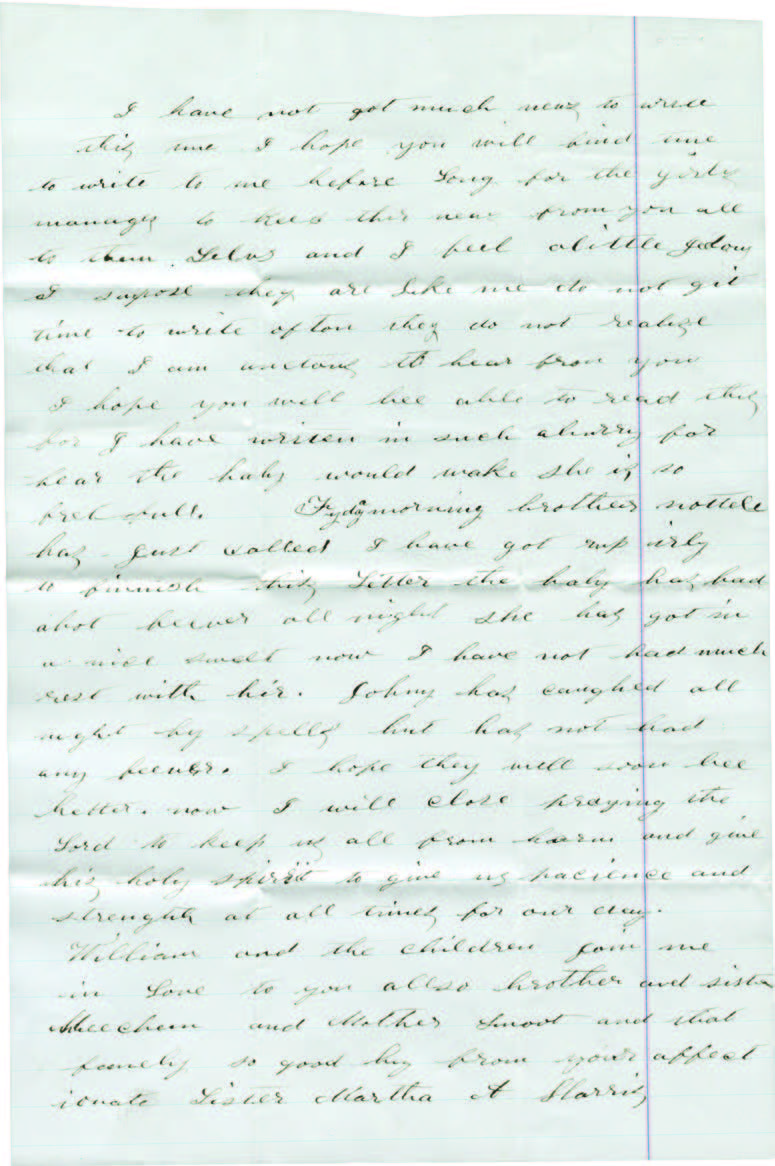 I have not got much news to write
this time I hope you will find time
to write to me before Long for the girls
manages to keep the news from you all
to them. and I feel alittle
I supose they are Like me do not git
time to write ofton they do not realize
that I am to hear from you
I hope you will bee able to read this
for I have writen in such ahurry for
fear the baby would wake she is so
fretfull. morning brother
has just called I have got up irly
to finnish this Letter the baby has had
ahot feever all night she has got in
a nice swet now I have not had much
rest with hir. Johny has caughed all
night by spells but has not had
any feever. I hope they will soon bee
better. now I will close praying the
Lord to keep us all from harm and give
his holy spirit to give us pacience and
strenght at all times for our day.
William and the children join me
in Love to you allso brother and sister
Meecham and Mother Smoot and that
famely so good by from your affect
ionate Sister Martha A Harris